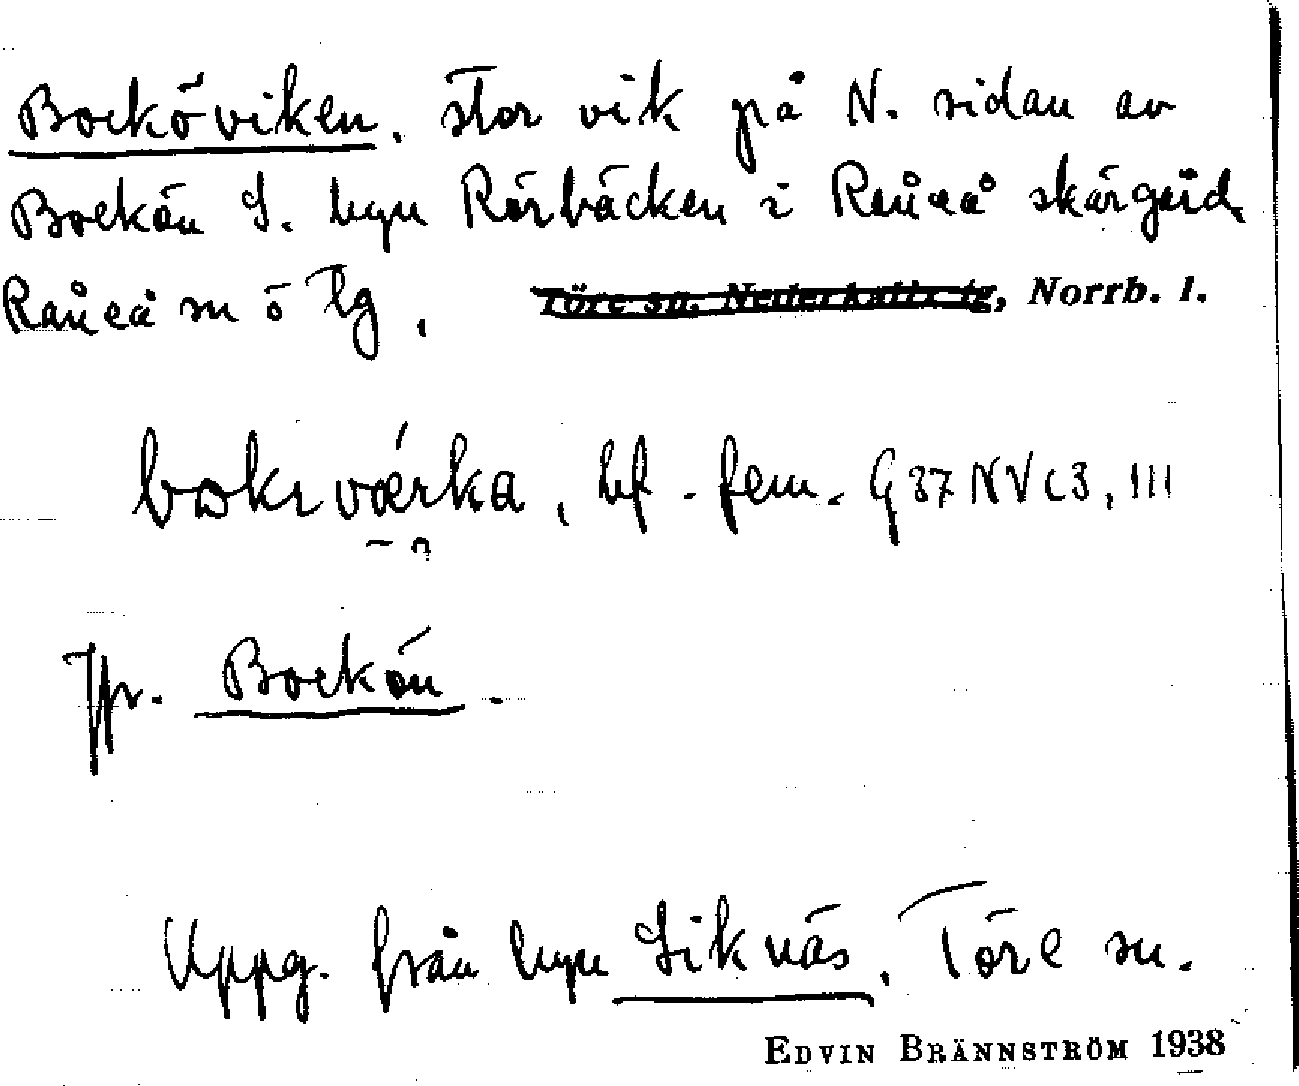 Bocköviken. stor vik på N. sidan av
Bockön S. byn Rörbäcken i Råneå skärgård,
Råneå sn o tg, Töre sn, Nederkalix tg, Norrb. l.
bokrværka, bf. fem. G 37 NV c3, 111
Jfr. Bockön.
Uppg. från byn Siknäs, Töre sn.
EDVIN BRÄNNSTRÖM 1938